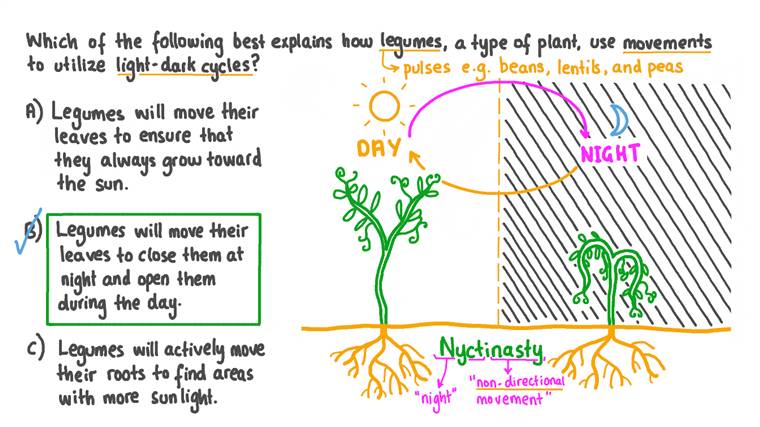 Which of the following best explains how legumes, a type of plant, use movements
to utilize light-dark cycles?
pulses e.g. beans, lentils, and peas
A) Legumes will move their
leaves to ensure that
they always grow toward
the sun.
B) Legumes will move their
leaves to close them at
night and open them
during the day.
C) Legumes will actively move
their roots to find areas
with more sunlight.
DAY
NIGHT
Nyctinasty
"night"
"non-directional
movement"